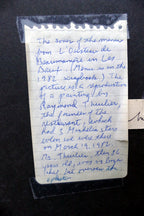 The cover of the menu
from L'Oustau de
Baumanière in Les
Baux. (Menu is in the
1982 scrapbook.) The
picture is a reproduction
of a painting by
Raymond Thuilier,
the founder of the
restaurant, which
had 3 Michelin stars
when we were there
on March 9, 1982.
Mr. Thuilier, then 85
years old, was no longer
the